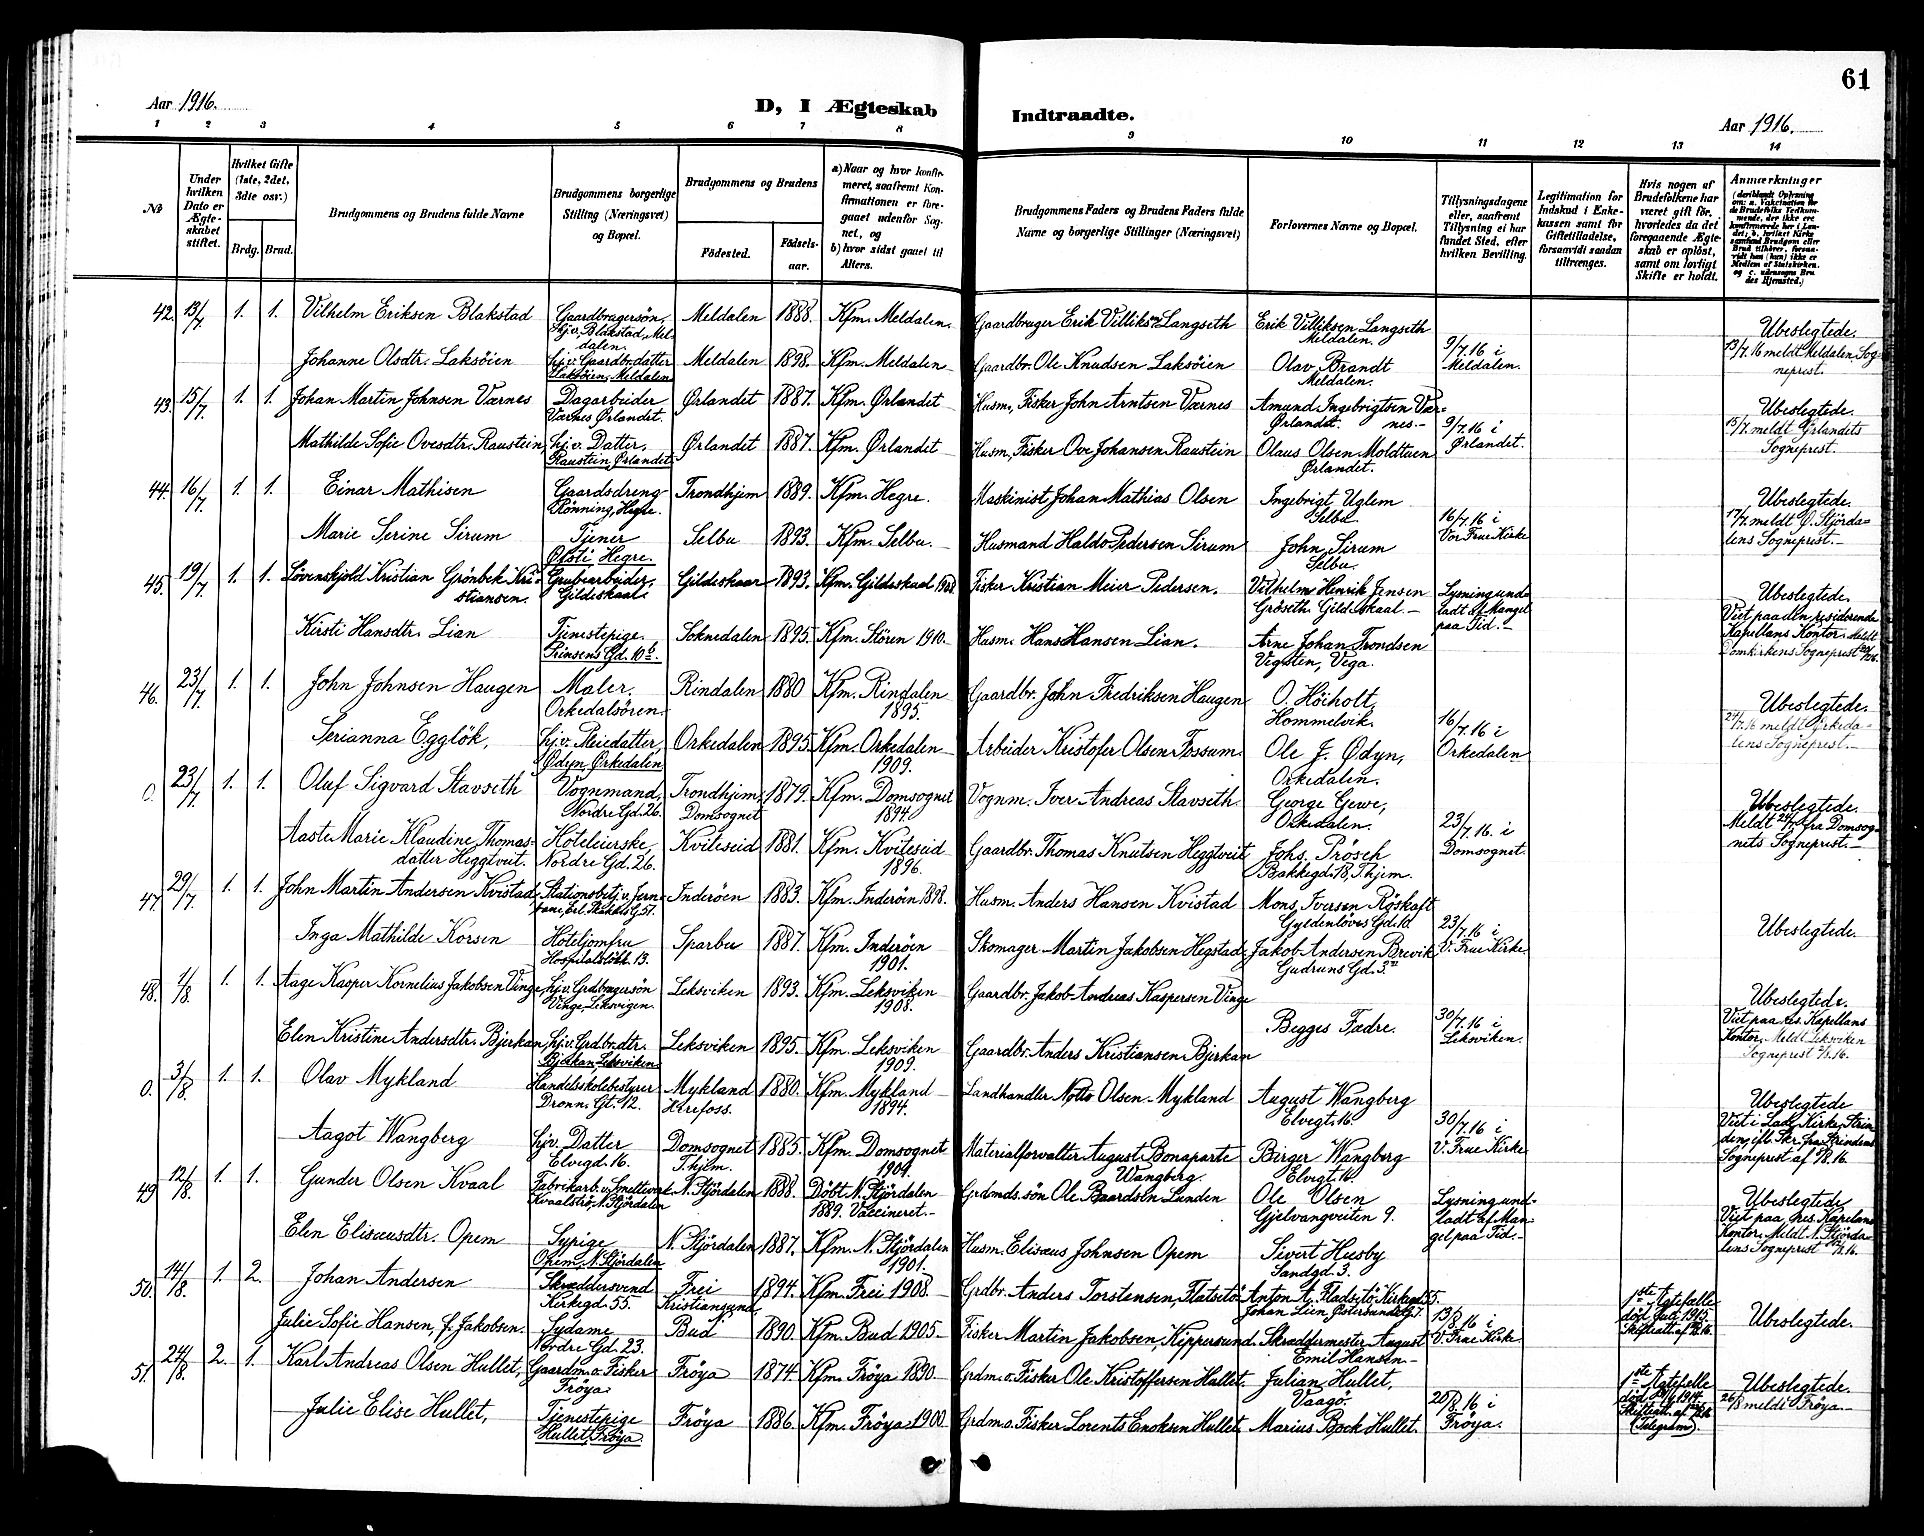 61
Aar 1916.
D, I Ægteskab Indtraadte.
Aar 1916.
1 2 3 4 5 6 7 8 9 10 11 12 13 14
No
Under hvilken Dato er Ægteskabet stiftet.
Hvilket Gifte (1ste, 2det, 3die osv.)
Brdg. Brud.
Brudgommens og Brudens fulde Navne
Brudgommens borgerlige Stilling (Næringsvei) og Bopæl.
Brudgommens og Brudens
Födested. Födselsaar.
a) Naar og hvor konfirmeret, saafremt Konfirmationen er foregaaet udenfor Sognet, og
b) hvor sidst gaaet til Alters.
Brudgommens Faders og Brudens Faders fulde Navne og borgerlige Stillinger (Næringsvei)
Forlovernes Navne og Bopæl.
Tillysningsdagene eller, saafremt Tillysning ei har fundet Sted, efter hvilken Bevilling.
Legitimation for Indskud i Enkekassen samt for Giftetilladelse, forsaavidt saadan tiltrænges.
Hvis nogen af Brudefolkene har været gift för, hvorledes da det foregaaende Ægteskab er oplöst, samt om lovligt Skifte er holdt.
Anmærkninger
42. 13/7. 1. 1. Vilhelm Eriksen Blakstad Gaardbrugersön, Hj.v. Blakstad, Meldalen. Meldalen 1888. Kfm. Meldalen. Gaardbruger Erik Villiksen Langseth Erik Villiksen Langseth Meldalen. Ubeslegtede.
Johanne Olsdtr. Laksöien hj.v. Gaardbrdatter Laksöien, Meldalen Meldalen 1898. Kfm. Meldalen Gaardbr. Ole Knudsen Laksöien Olav Brandt Meldalen. 9/7.16 i Meldalen. 13/7.16 meldt Meldalen Sogneprest.
43. 15/7. 1. 1. Johan Martin Johnsen Værnes Dagarbeider Værnes Ørlandet. Ørlandet 1887. Kfm. Ørlandet Husm, Fisker John Arntsen Værnes Amund Ingebrigtsen Værnes. Ørlandet. Ubeslegtede.
Mathilde Sofie Ovesdtr. Raustein, hj.v. Datter, Raustein, Ørlandet. Ørlandet 1887. Kfm. Ørlandet Husm, Fisker Ove Johansen Raustein Olaus Olsen Moldtuen Ørlandet. 9/7.16 i Ørlandet. 15/7. meldt Ørlandets Sogneprest.
44. 16/7. 1. 1. Einar Mathisen Gaardsdreng Rönning, Hegre. Trondhjem 1889. Kfm. Hegre. Maskinist Johan Mathias Olsen Ingebrigt Uglem Selbu Ubeslegtede.
Marie Serine Sirum Tjener Hegre. Selbu 1893. Kfm. Selbu. Husmand Haldo Pedersen Sirum John Sirum Selbu. 16/7.16 i Vor Frue Kirke 17/7. meldt Ö. Stjördalens Sogneprest.
45. 19/7. 1. 1. Lövenskjold Kristian Grönbek Kristiansen. Grubearbeider, Gildeskaal. Gildeskaal 1893. Kfm. Gildeskaal 1908. Fisker Kristian Meier Pedersen. Vilhelm Henrik Jensen Gröseth. Gildeskaal. Lysning undladt af Mangel paa Tid. Ubeslegtede.
Kirsti Hansdtr. Lian Tjenestepige Prinsens Gd. 10b. Soknedalen 1895. Kfm. Stören 1910. Husm. Hans Hansen Lian. Arne Johan Trondsen Vegsten, Vega. Viet paa den residerende Kapellans Kontor. Meldt Domkirkens Sogneprest
46. 23/7. 1. 1. John Johnsen Haugen Maler. Orkedalsören. Rindalen 1880 Kfm. Rindalen 1895. Gaardbr. John Fredriksen Haugen O. Höiholt, Hommelvik. Ubeslegtede.
Serianna Egglök, hj.v. Steiedatter, Ødyn, Orkedalen Orkedalen 1895. Kfm. Orkedalen 1909. Arbeider Kristofer Olsen Fossum. Ole J. Ødyn, Orkedalen. 16/7.16 i Orkedalen 24/7.16 meldt Orkedalens Sogneprest.
0. 23/7. 1. 1. Oluf Sigvard Stavseth Vognmand, Nordre Gd. 26. Trondhjem, Domsognet 1879. Kfm. Domsognet 1894. Vognm. Iver Andreas Stavseth George Gewe, Orkedalen. Ubeslegtede.
Aaste Marie Klaudine Thomasdatter Heggtveit. Hoteleierske, Nordre Gd. 26. Kviteseid 1881. Kfm. Kviteseid 1896. Gaardbr. Thomas Knutsen Heggtveit Johs. Prösch Bakkegd. 18, T.hjem. 23/7.16. i Domsognet. Meldt 24/7 fra Domsognets Sogneprest.
47. 29/7. 1. 1. John Martin Andersen Kvistad Stationsbetj. v. Jernbane, Erl. Skakkes G. 51. Inderöen 1883. Kfm. Inderöen 1898. Husm. Anders Hansen Kvistad Mons Iversen Röskaft Gyldenlöves Gd. 10.
Inga Mathilde Korsen Hoteljomfru Hospitalslökk. 13. Sparbu 1887. Kfm. Inderöen 1901. Skomager Martin Jakobsen Hegstad Jakob Andersen Brevik Gudruns Gd. 3. 23/7.16 i V. Frue Kirke Ubeslegtede.
48. 1/8. 1. 1. Aage Kasper Kornelius Jakobsen Vinge hj.v. Grdbrugersön Vinge, Leksvigen. Leksviken 1893. Kfm. Leksviken 1908. Gaardbr. Jakob Andreas Kaspersen Vinge Begges Fædre. Ubeslegtede.
Elen Kristine Andersdtr. Bjerkan hj.v. Grd.br.dtr. Bjerkan Leksviken Leksviken 1895. Kfm. Leksviken 1909. Gaardbr. Anders Kristiansen Bjerkan 30/7.16 i Leksviken. Viet paa res. Kapellans Kontor. Meldt Leksviken Sogneprest 2/8.16.
0. 3/8. 1. 1. Olav Mykland Handelsskolebestyrer Dronn. Gt. 12. Mykland Herefoss. 1880. Kfm. Mykland 1894. Landhandler Notto Olsen Mykland August Wangberg Elvegt. 16. Ubeslegtede
Aagot Wangberg hjv. Datter Elvegd. 16. Domsognet T.hjem. 1885. Kfm. Domsognet 1901. Materialforvalter August Bonaparte Wangberg. Birger Wangberg Elvegt. 16. 30/7.16 i V. Frue Kirke Viet i Lade Kirke, Strinden, efl. Skr. fra Strindens Sogneprest af /8.16.
49 12/8. 1. 1. Gunder Olsen Kvaal Fabrikarb. v. Smelteverk Kvaalstrø, N. Stjördalen N. Stjördalen 1888. Döbt N. Stjördalen 1889. Vaccineret. Grdmds. sön Ole Baardsen Lunden Ole Olsen Gjelvangveiten 9. Lysning undladt af Mangel paa Tid. Ubeslegtede
Elen Elisæusdtr. Opem Sypige Opem, N. Stjördalen N. Stjördalen 1887. Kfm. N. Stjördalen 1901. Husm. Elisæus Johnsen Opem Sivert Husby Sandgd. 3. Viet paa res. Kapellans Kontor. Meldt N. Stjördalens Sogneprest
50. 14/8. 1. 2. Johan Andersen Skræddersvend Kirkegd. 55. Frei Kristiansund 1894. Kfm. Frei 1908. Grdbr. Anders Torstensen, Flatsetö Anton A. Fladsetö Kirkegd. 55. Johan Lien, 1ste Ægtefælle död Juli 1915. Skifteatt. af
Julie Sofie Hansen, f. Jakobsen. Sydame Nordre Gd. 23. Bud 1890. Kfm. Bud 1905. Fisker Martin Jakobsen, Kippersund. Skræddermester August Emil Hansen 13/8.16 i V. Frue Kirke Ubeslegtede.
51. 24/8. 2. 1. Karl Andreas Olsen Hullet, Gaardm. o. Fisker Fröya. Fröya 1874 Kfm. Fröya 1890 Grdm. o. Fisker Ole Kristoffersen Hullet. Julian Hullet, Vaagö. 1ste Ægtefælle död 1914. Skifteatt. af (Telegram). Ubeslegtede.
Julie Elise Hullet, Tjenestepige Hullet, Fröya. Fröya 1886. Kfm. Fröya 1900 Grdm. o. Fisker Lorents Enoksen Hullet. Marius Bock Hullet. 20/8.16 i Fröya. 26/8 meldt Fröya.